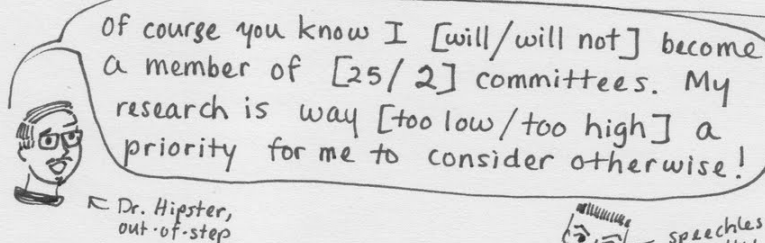 Of course you know I [will/will not] become
a member of [25/2] committees. My
research is way [too low/too high] a
priority for me to consider otherwise!
← Dr. Hipster,
out-of-step